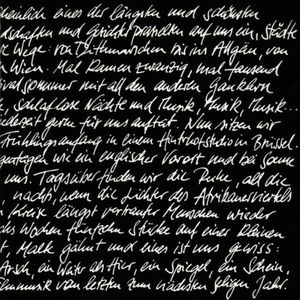 scheinlich eines der längsten und schönsten
schaften und Gesichter prasselten auf uns ein, Städte
Wege: von Dithmarschen bis ins Allgäu, von
Wien. Mal kamen zwanzig, mal tausend
sommer mit all den andern Gauklern
, schlaflose Nächte und Musik, Musik, Musik...
jederzeit gern für uns auftat. Nun sitzen wir
Frühlingsanfang in einem Hinterhofstudio in Brüssel.
tagen wie ein englischer Vorort und bei Sonne
uns. Tagsüber finden wir die Ruhe, all die
, nachts, wenn die Lichter des Afrikanerviertels
Kreis längst vertrauter Menschen wieder
Wochen fünfzehn Stücke auf einer kleinen
. Malk gähnt und eines ist uns gewiss:
Arsch, ein Walter als Hier, ein Spiegel, ein Schein,
Filmmusik vom letzten zum nächsten seligen Jahr.